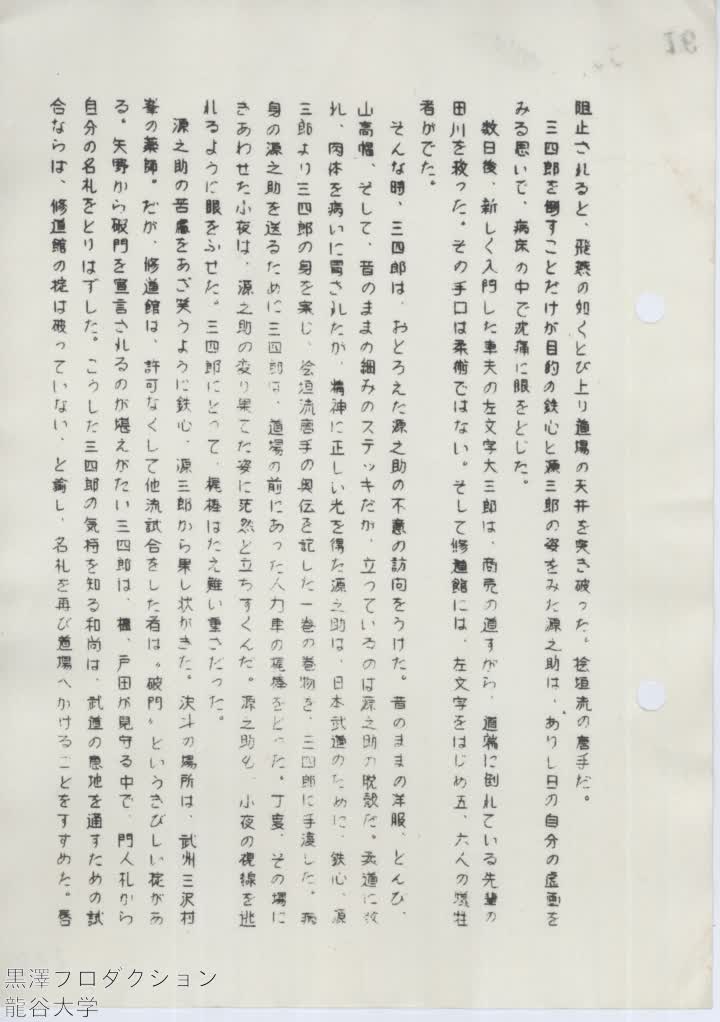 阻止されると、飛燕の如くとび上り道場の天井を突き破った。桧垣流の唐手だ。
三四郎を倒すことだけが目的の鉄心と源三郎の姿をみた源之助は、ありし日の自分の虚画を
みる思いで、病床の中で沈痛に眼をとじた。
数日後、新しく入門した車夫の左文字大三郎は、商売の道すがら、道端に倒れている先輩の
田川を救った。その手口は柔術ではない。そして修道館には、左文字をはじめ五、六人の犠牲
者がでた。
そんな時、三四郎は、おとろえた源之助の不意の訪問をうけた。昔のままの洋服、とんび、
山高帽、そして、昔のままの細みのステッキだが、立っているのは源之助の脱殻だ。柔道に敗
れ、肉体を病いに冒されたが、精神に正しい光を得た源之助は、日本武道のために、鉄心、源
三郎より三四郎の身を案じ、桧垣流唐手の奥伝を記した一巻の巻物を、三四郎に手渡した。病
身の源之助を送るために三四郎は、道場の前にあった人力車の梶棒をとった。丁度、その場に
きあわせた小夜は、源之助の変り果てた姿に茫然と立ちすくんだ。源之助も、小夜の視線を逃
れるように眼をふせた。三四郎にとって、梶棒はたえ難い重さだった。
源之助の苦慮をあざ笑うように鉄心、源三郎から果し状がきた。決斗の場所は、武州三沢村
峯の薬師。だが、修道館は、許可なくして他流試合をした者は〃破門〃というきびしい掟があ
る。矢野から破門を宣言されるのが堪えがたい三四郎は、檀、戸田が見守る中で、門人札から
自分の名札をとりはずした。こうした三四郎の気持を知る和尚は、武道の意地を通すための試
合ならば、修道館の掟は破っていない、と諭し、名札を再び道場へかけることをすすめた。唇
91
黒澤プロダクション
龍谷大学